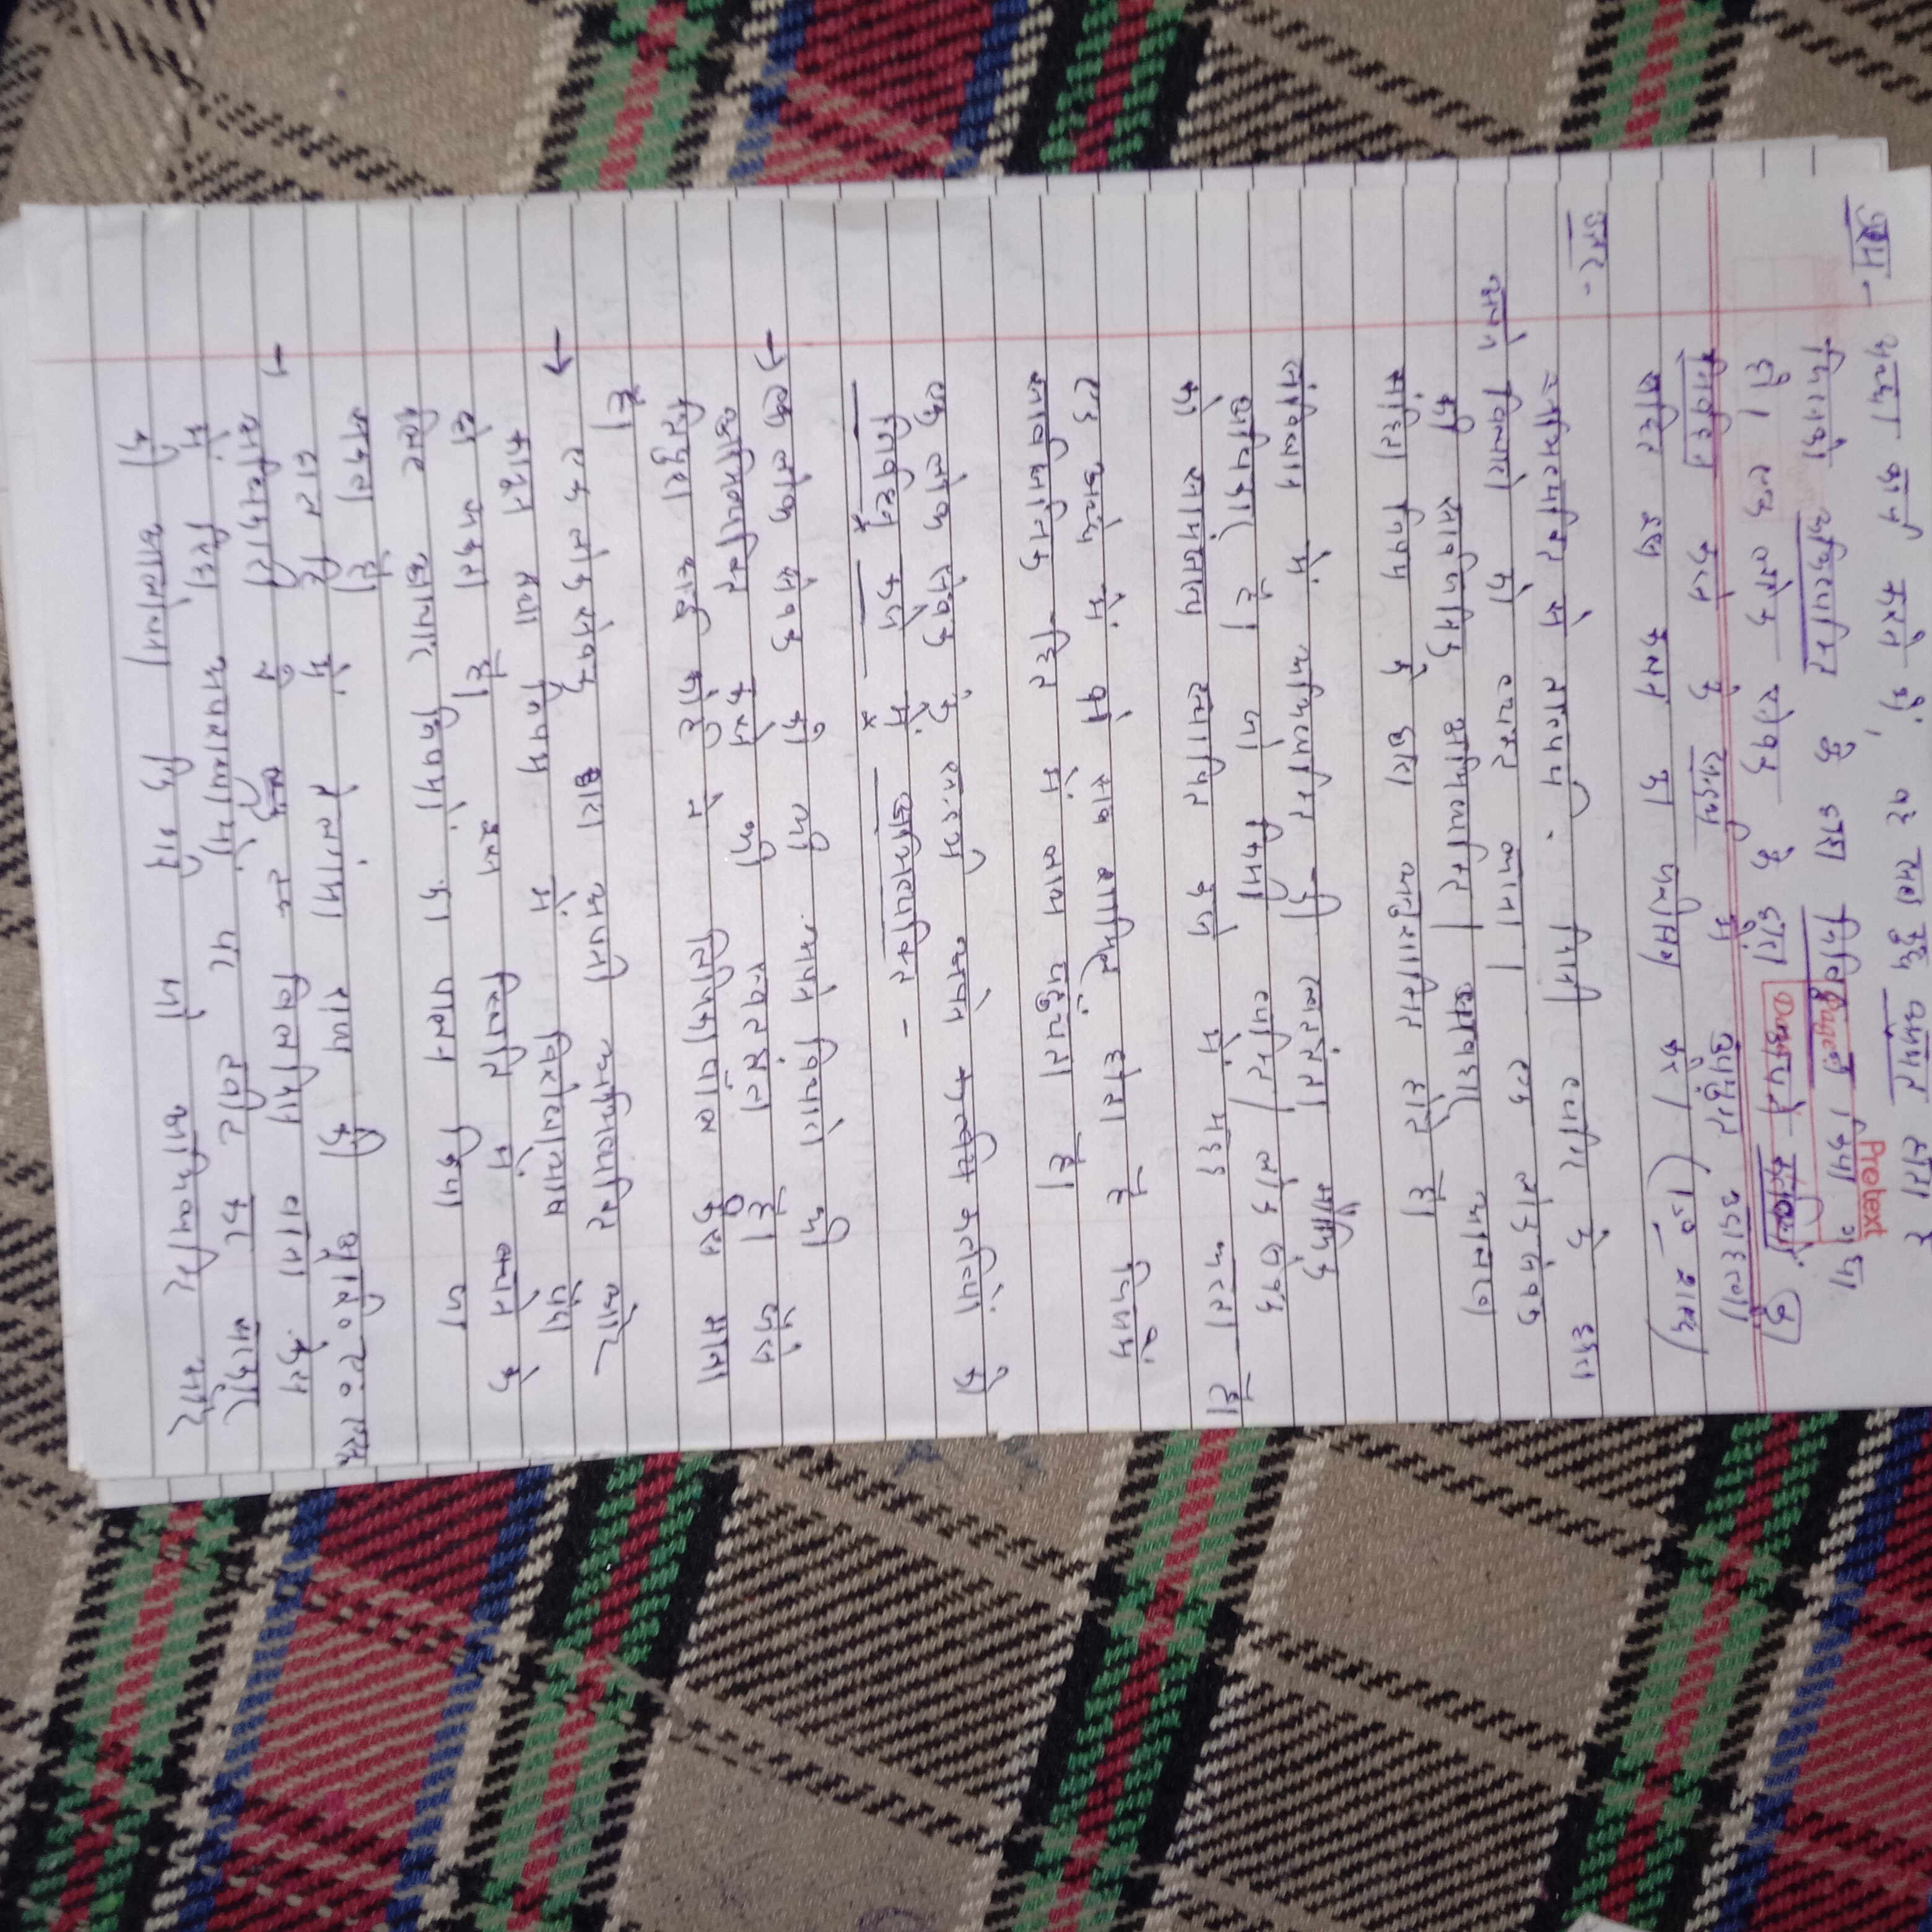 प्रश्न- अच्छा कार्य करने में, वह सब कुछ शामिल होता है
जिसको अभिव्यक्ति के द्वारा निर्विघ्न किया गया
हो। एक लोक सेवक के द्वारा अपने कर्तव्यों के
निर्वहन करने के सन्दर्भ में उपयुक्त उदाहरणों
सहित इस कथन का परीक्षण करें। (150 शब्द)
Pretext
उत्तर-
अभिव्यक्ति से तात्पर्य - किसी व्यक्ति के द्वारा
अपने विचारों को व्यक्त करना। एक लोकसेवक
की सार्वजनिक अभिव्यक्ति आचरण
संहिता नियम के द्वारा अनुशासित होते हैं।
संविधान में अभिव्यक्ति की स्वतंत्रता मौलिक
अधिकार है। जो किसी व्यक्ति/ लोक सेवक
को सामंजस्य स्थापित करने में मदद करता है।
एक अच्छे में वो सब शामिल होता है जिससे
सार्वजनिक हित में लाभ पहुंचता है।
एक लोक सेवक के सन्दर्भ अपने कर्तव्य कर्तव्यों को
निर्वहन करने में अभिव्यक्ति -
→ एक लोक सेवक को भी अपने विचारों की
अभिव्यक्ति करने की स्वतंत्रता है। जैसे
त्रिपुरा हाई कोर्ट ने लिपिका पॉल केस माना
है।
→ एक लोक सेवक द्वारा अपनी अभिव्यक्ति और
कानून तथा नियम में विरोधाभास पैदा
हो सकता है। इस स्थिति में अपने के
लिए आचार नियमों का पालन किया जा
सकता है।
→ हाल हि में तेलंगाना राज्य की आई०ए०एस
अधिकारी ने विलकिस बानो केस
में रिहा अपराधियों पर ट्वीट कर सरकार
की आलोचना कि गयी जो अभिव्यक्ति और